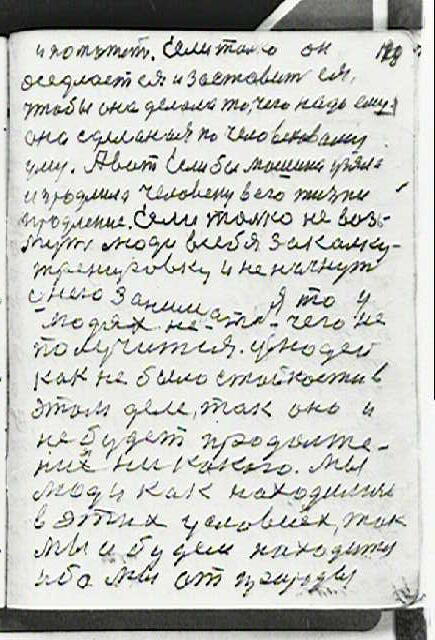 и потухнет. Если только он 129
оседлается и заставит ея,
чтобы она делала то, чего надо ему,
она сделаная по человековому
уму. А вот Если бы машина взяла
и зродмила человеку в его жизни
продление. Если только не возь-
мут люди в себя закалку-
тренировку и не начнут
с нею заниматся то у
людях не-то-чего не
получится. у людей
как не было стойкости в
этом деле, так оно и
не будет продолже-
ние ни какого. Мы
люди как находились
в этих условиях, так
мы и будем находится
ибо мы от природы